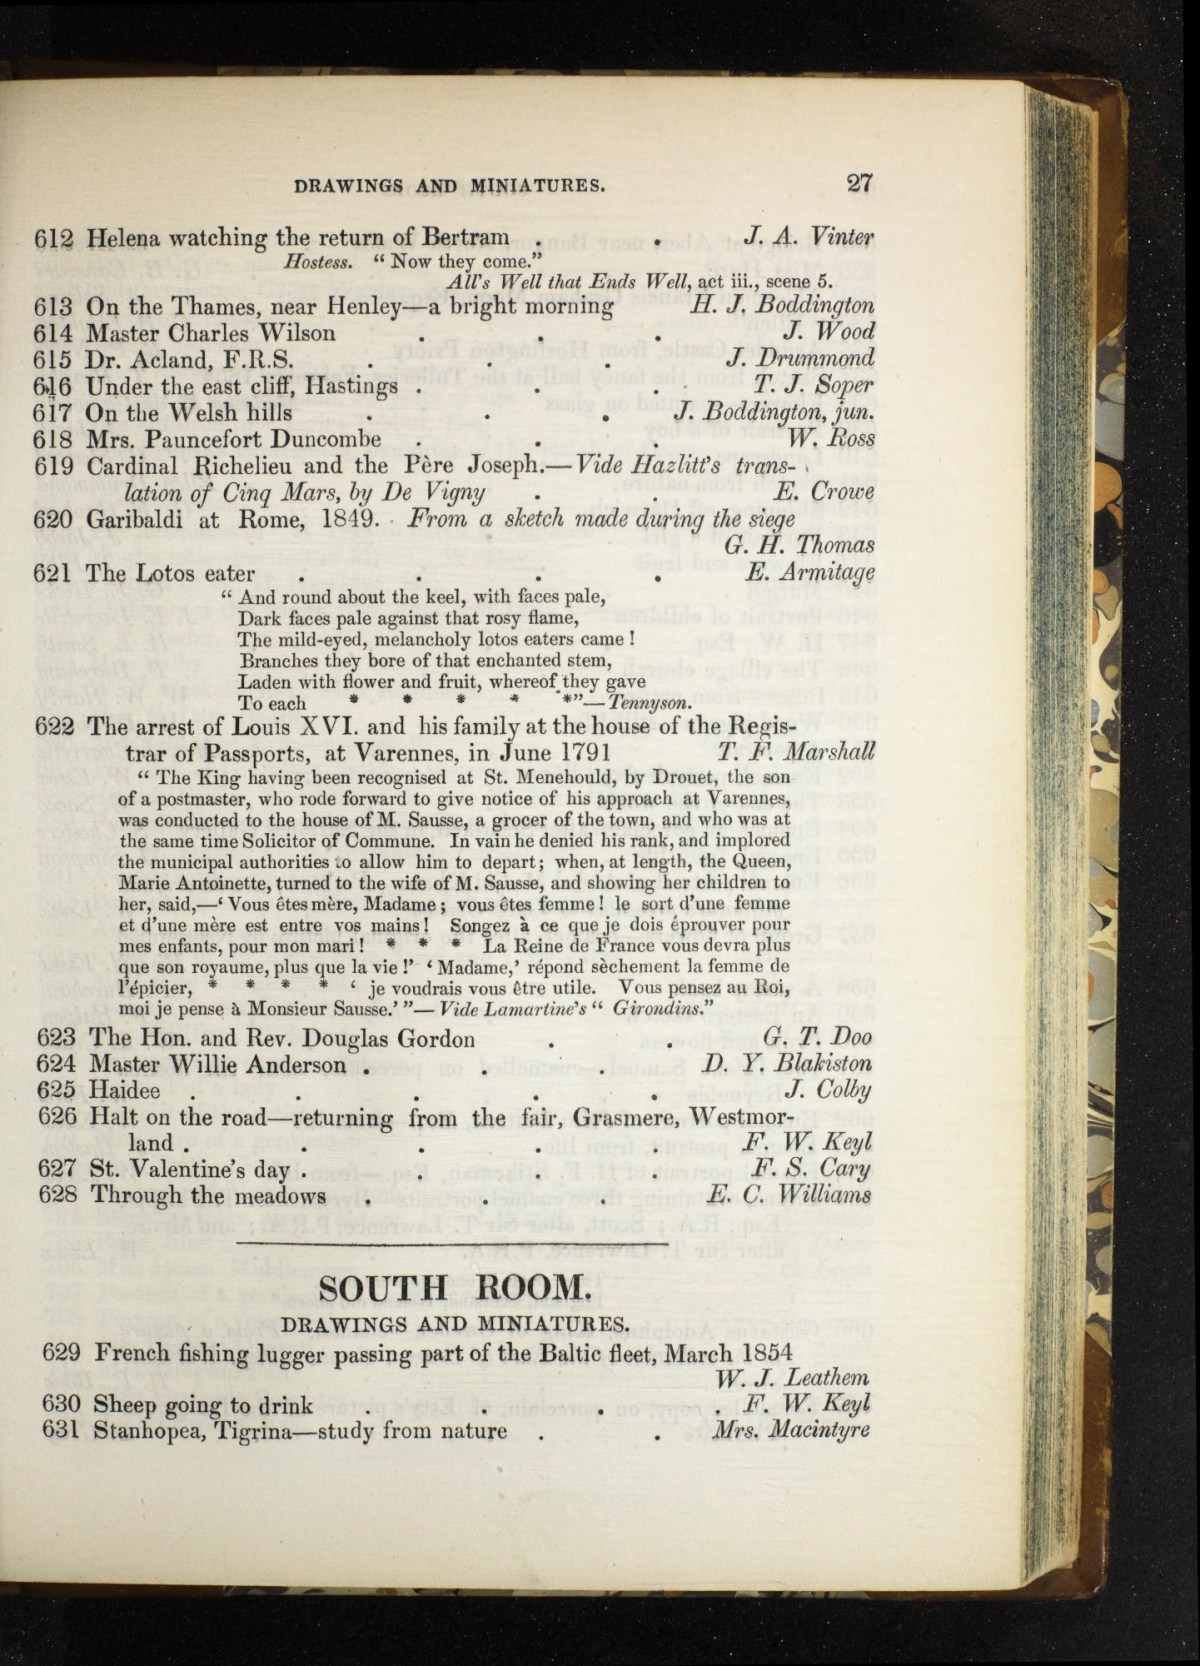 DRAWINGS AND MINIATURES. 27
612 Helena watching the return of Bertram . . J. A. Vinter
Hostess. “ Now they come.”
All's Well that Ends Well, act iii., scene 5.
613 On the Thames, near Henley—a bright morning H. J. Boddington
614 Master Charles Wilson . . . J. Wood
615 Dr. Acland, F.R.S. . . . J. Drummond
616 Under the east cliff, Hastings . . . T. J. Soper
617 On the Welsh hills . . . J. Boddington, jun.
618 Mrs. Pauncefort Duncombe . . . W. Ross
619 Cardinal Richelieu and the Père Joseph.—Vide Hazlitt's trans-
lation of Cinq Mars, by De Vigny . . E. Crowe
620 Garibaldi at Rome, 1849. From a sketch made during the siege
G. H. Thomas
621 The Lotos eater . . . . E. Armitage
“ And round about the keel, with faces pale,
Dark faces pale against that rosy flame,
The mild-eyed, melancholy lotos eaters came !
Branches they bore of that enchanted stem,
Laden with flower and fruit, whereof they gave
To each * * * * *”—Tennyson.
622 The arrest of Louis XVI. and his family at the house of the Regis-
trar of Passports, at Varennes, in June 1791 T. F. Marshall
“ The King having been recognised at St. Menehould, by Drouet, the son
of a postmaster, who rode forward to give notice of his approach at Varennes,
was conducted to the house of M. Sausse, a grocer of the town, and who was at
the same time Solicitor of Commune. In vain he denied his rank, and implored
the municipal authorities to allow him to depart; when, at length, the Queen,
Marie Antoinette, turned to the wife of M. Sausse, and showing her children to
her, said,—‘ Vous êtes mère, Madame ; vous êtes femme ! le sort d'une femme
et d'une mère est entre vos mains ! Songez à ce que je dois éprouver pour
mes enfants, pour mon mari ! * * * La Reine de France vous devra plus
que son royaume, plus que la vie !’ ‘ Madame,’ répond sèchement la femme de
l'épicier, * * * * ‘ je voudrais vous être utile. Vous pensez au Roi,
moi je pense à Monsieur Sausse.’ ”— Vide Lamartine's “ Girondins.”
623 The Hon. and Rev. Douglas Gordon . . G. T. Doo
624 Master Willie Anderson . . . D. Y. Blakiston
625 Haidee . . . . . J. Colby
626 Halt on the road—returning from the fair, Grasmere, Westmor-
land . . . . . F. W. Keyl
627 St. Valentine's day . . . . F. S. Cary
628 Through the meadows . . . E. C. Williams
SOUTH ROOM.
DRAWINGS AND MINIATURES.
629 French fishing lugger passing part of the Baltic fleet, March 1854
W. J. Leathem
630 Sheep going to drink . . . . F. W. Keyl
631 Stanhopea, Tigrina—study from nature . . Mrs. Macintyre